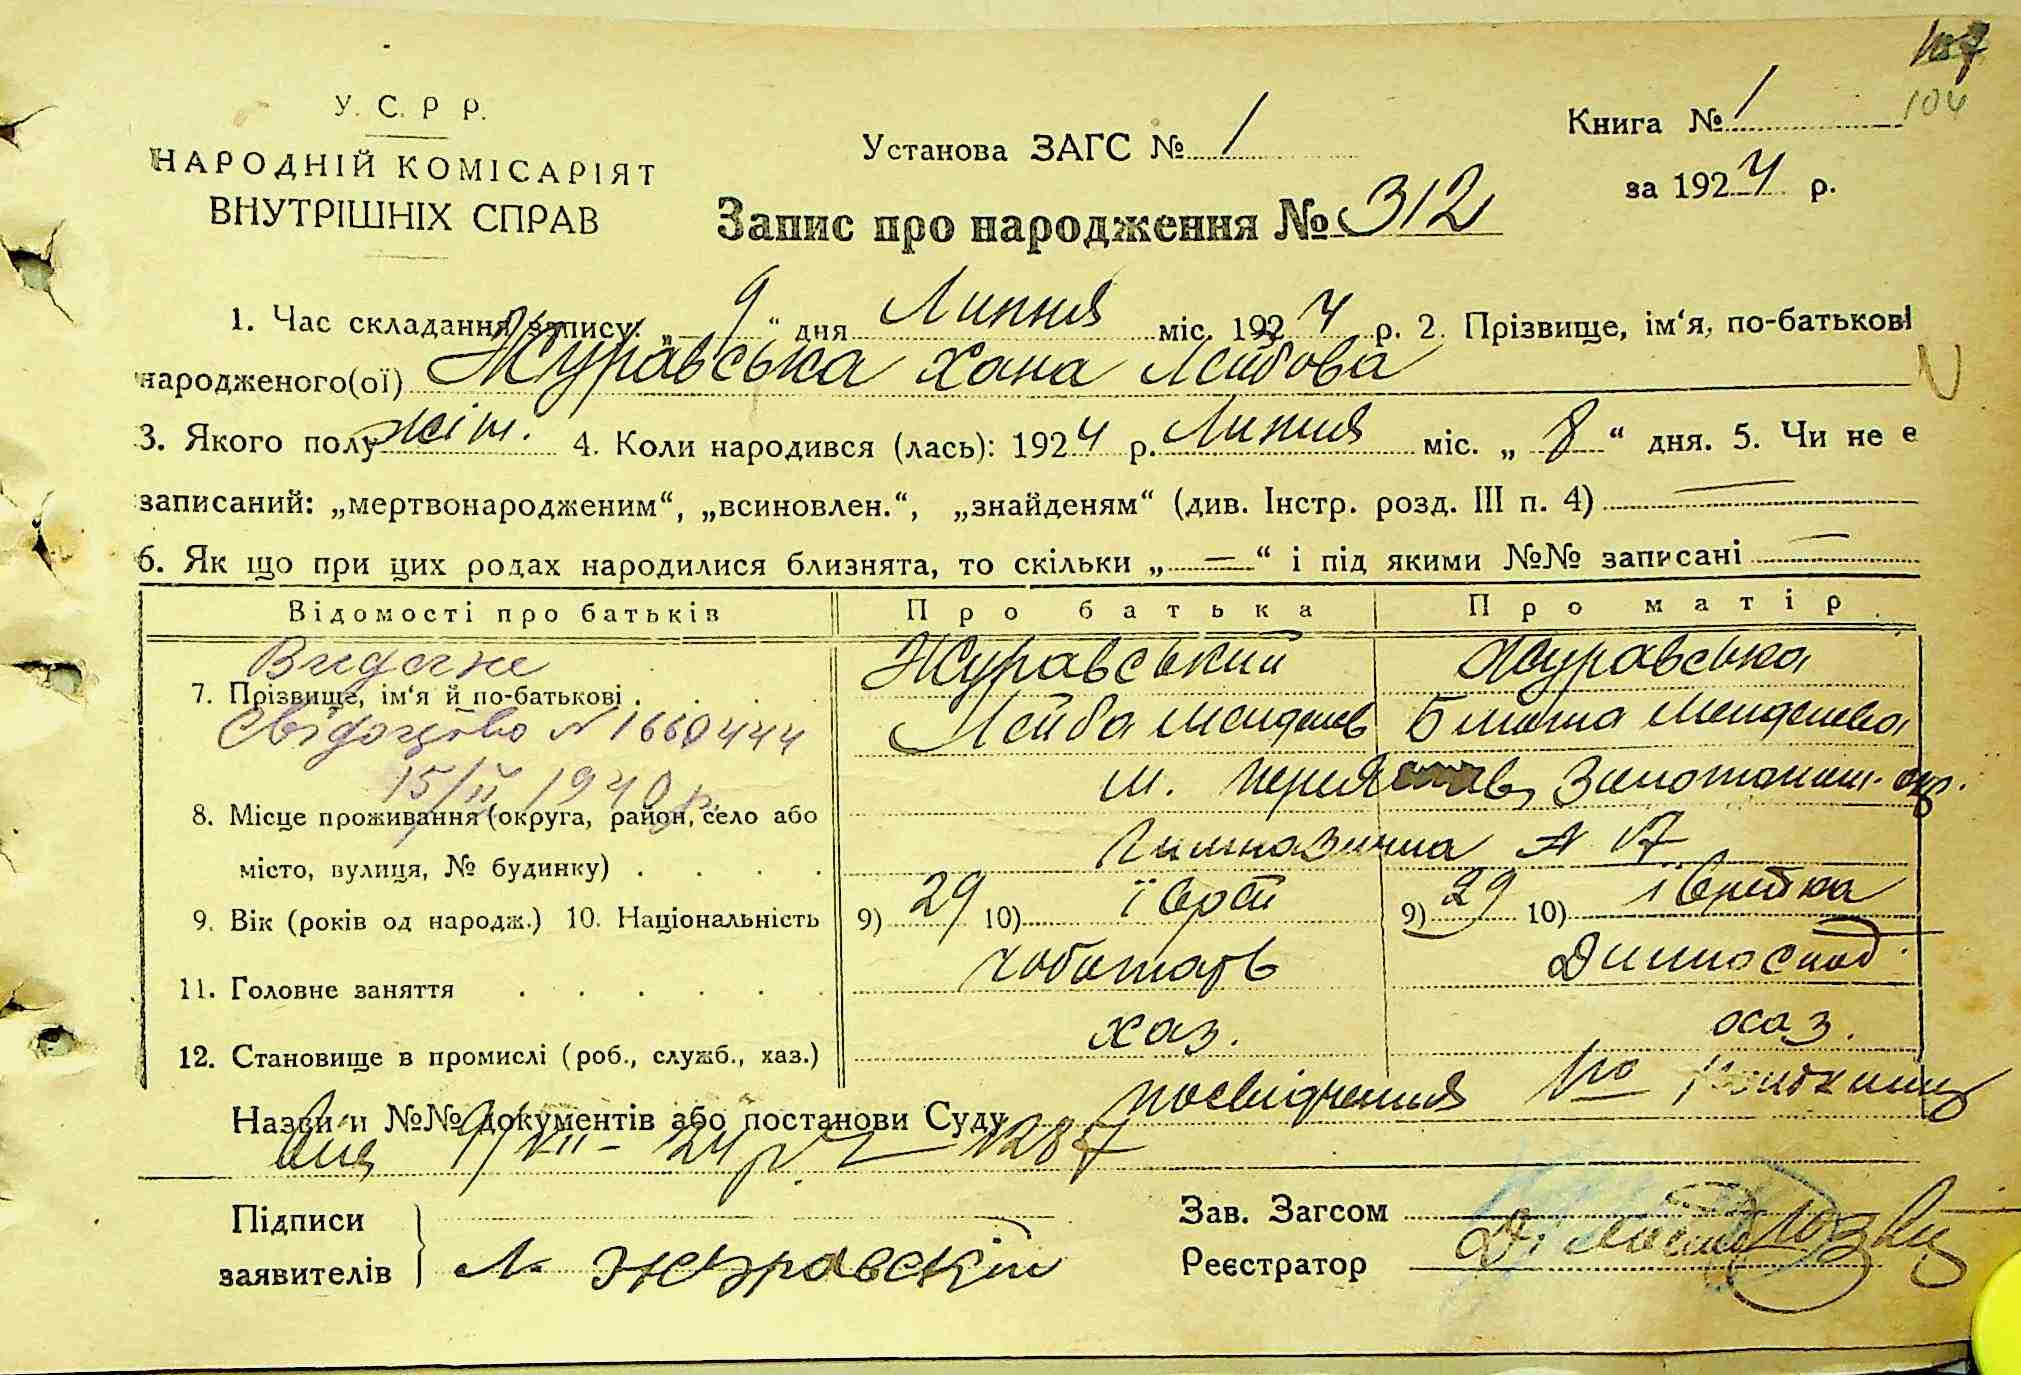 107
104
У. С. Р Р.
НАРОДНІЙ КОМІСАРІЯТ
ВНУТРІШНІХ СПРАВ
Установа ЗАГС № 1
Книга № 1
за 1924 р.
Запис про народження № 312
1. Час складання запису: „ 9 “ дня Липня міс. 1924 р. 2. Прізвище, ім‘я, по-батькові
народженого(ої) Журавська Хана Лейбова
3. Якого полу жін. 4. Коли народився (лась): 1924 р. Липня міс. „ 8 “ дня. 5. Чи не є
записаний: „мертвонародженим“, „всиновлен.“, „знайденям“ (див. Інстр. розд. III п. 4) —
6. Як що при цих родах народилися близнята, то скільки „ — “ і під якими №№ записані —
Відомості про батьків Про батька Про матір
Видане
7. Прізвище, ім‘я й по-батькові . . . . Журавський Журавська
Свідоцтво № 1660444 Лейба Менделев Менделева
15/II 1940 р.
8. Місце проживання (округа, район, село або м. Золотоніш. окр.
місто, вулиця, № будинку) . . . . Гимназична № 17
9. Вік (років од народж.) 10. Національність 9) 29 10) їврей 9) 29 10) їврейка
11. Головне заняття . . . . . . чоботарь
12. Становище в промислі (роб., служб., хаз.) хаз. хаз.
Назви и №№ документів або постанови Суду посвідчення
від 9/VII - 24 р. № 1287
Підписи
заявителів Л. Журавскій
Зав. Загсом
Реєстратор